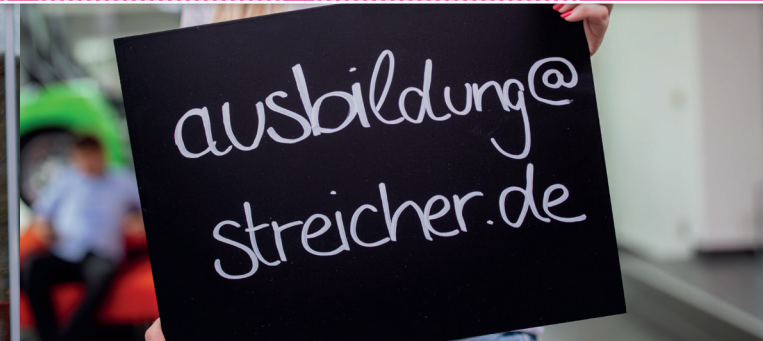 ausbildung@
streicher.de